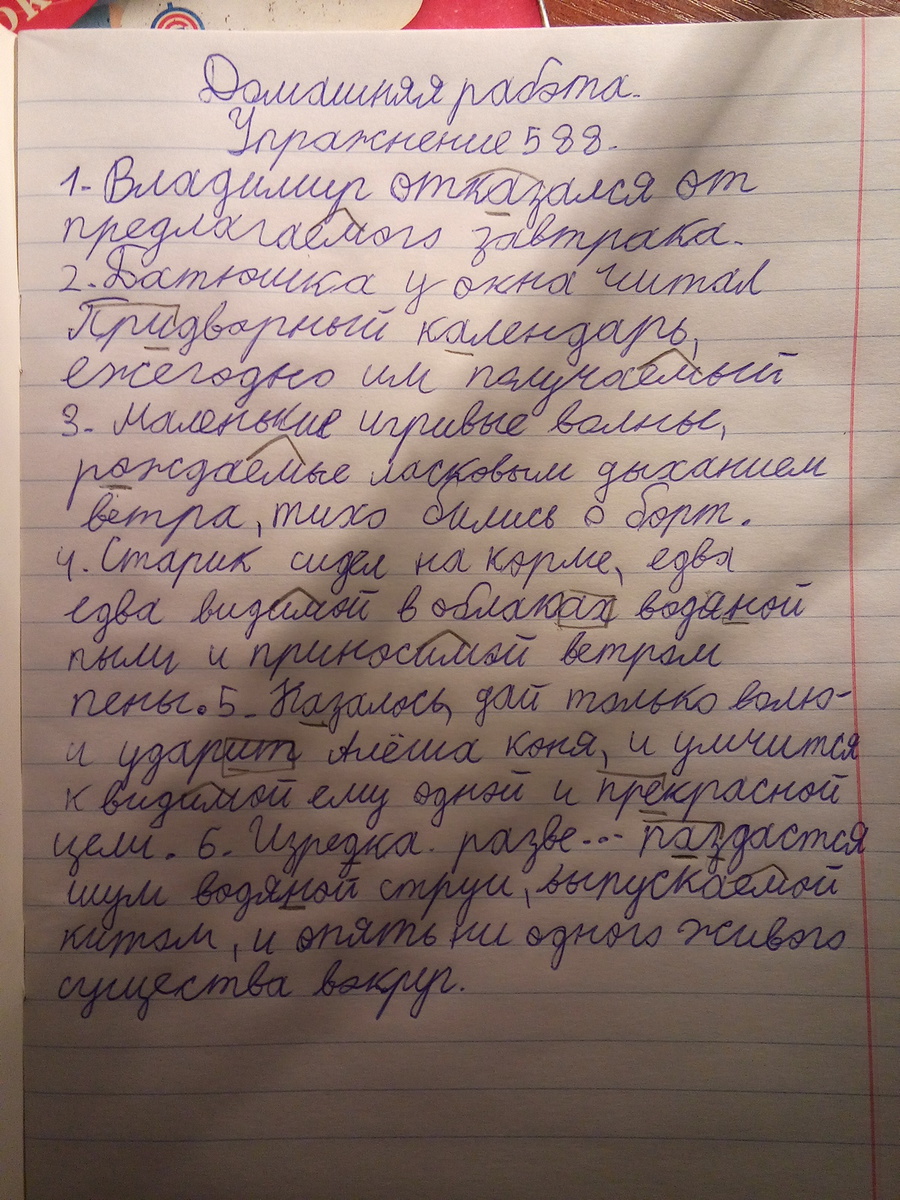 ок
Домашняя работа.
Упражнение 588.
1. Владимир отказался от
предлагаемого завтрака.
2. Батюшка у окна читал
Придворный календарь,
ежегодно им получаемый
3. Маленькие игривые волны,
рождаемые ласковым дыханием
ветра, тихо бились о борт.
4. Старик сидел на корме, едва
едва видимой в облаках водяной
пыли и приносимой ветром
пены. 5. Казалось, дай только волю-
и ударит Алёша коня, и умчится
к видимой ему одной и прекрасной
цели. 6. Изредка разве... раздастся
шум водяной струи, выпускаемой
китом, и опять ни одного живого
существа вокруг.